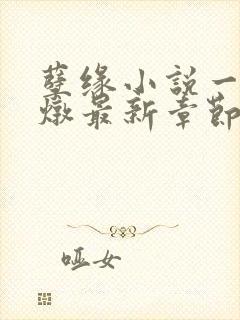 孽缘小説一
燉最新章節
哑女